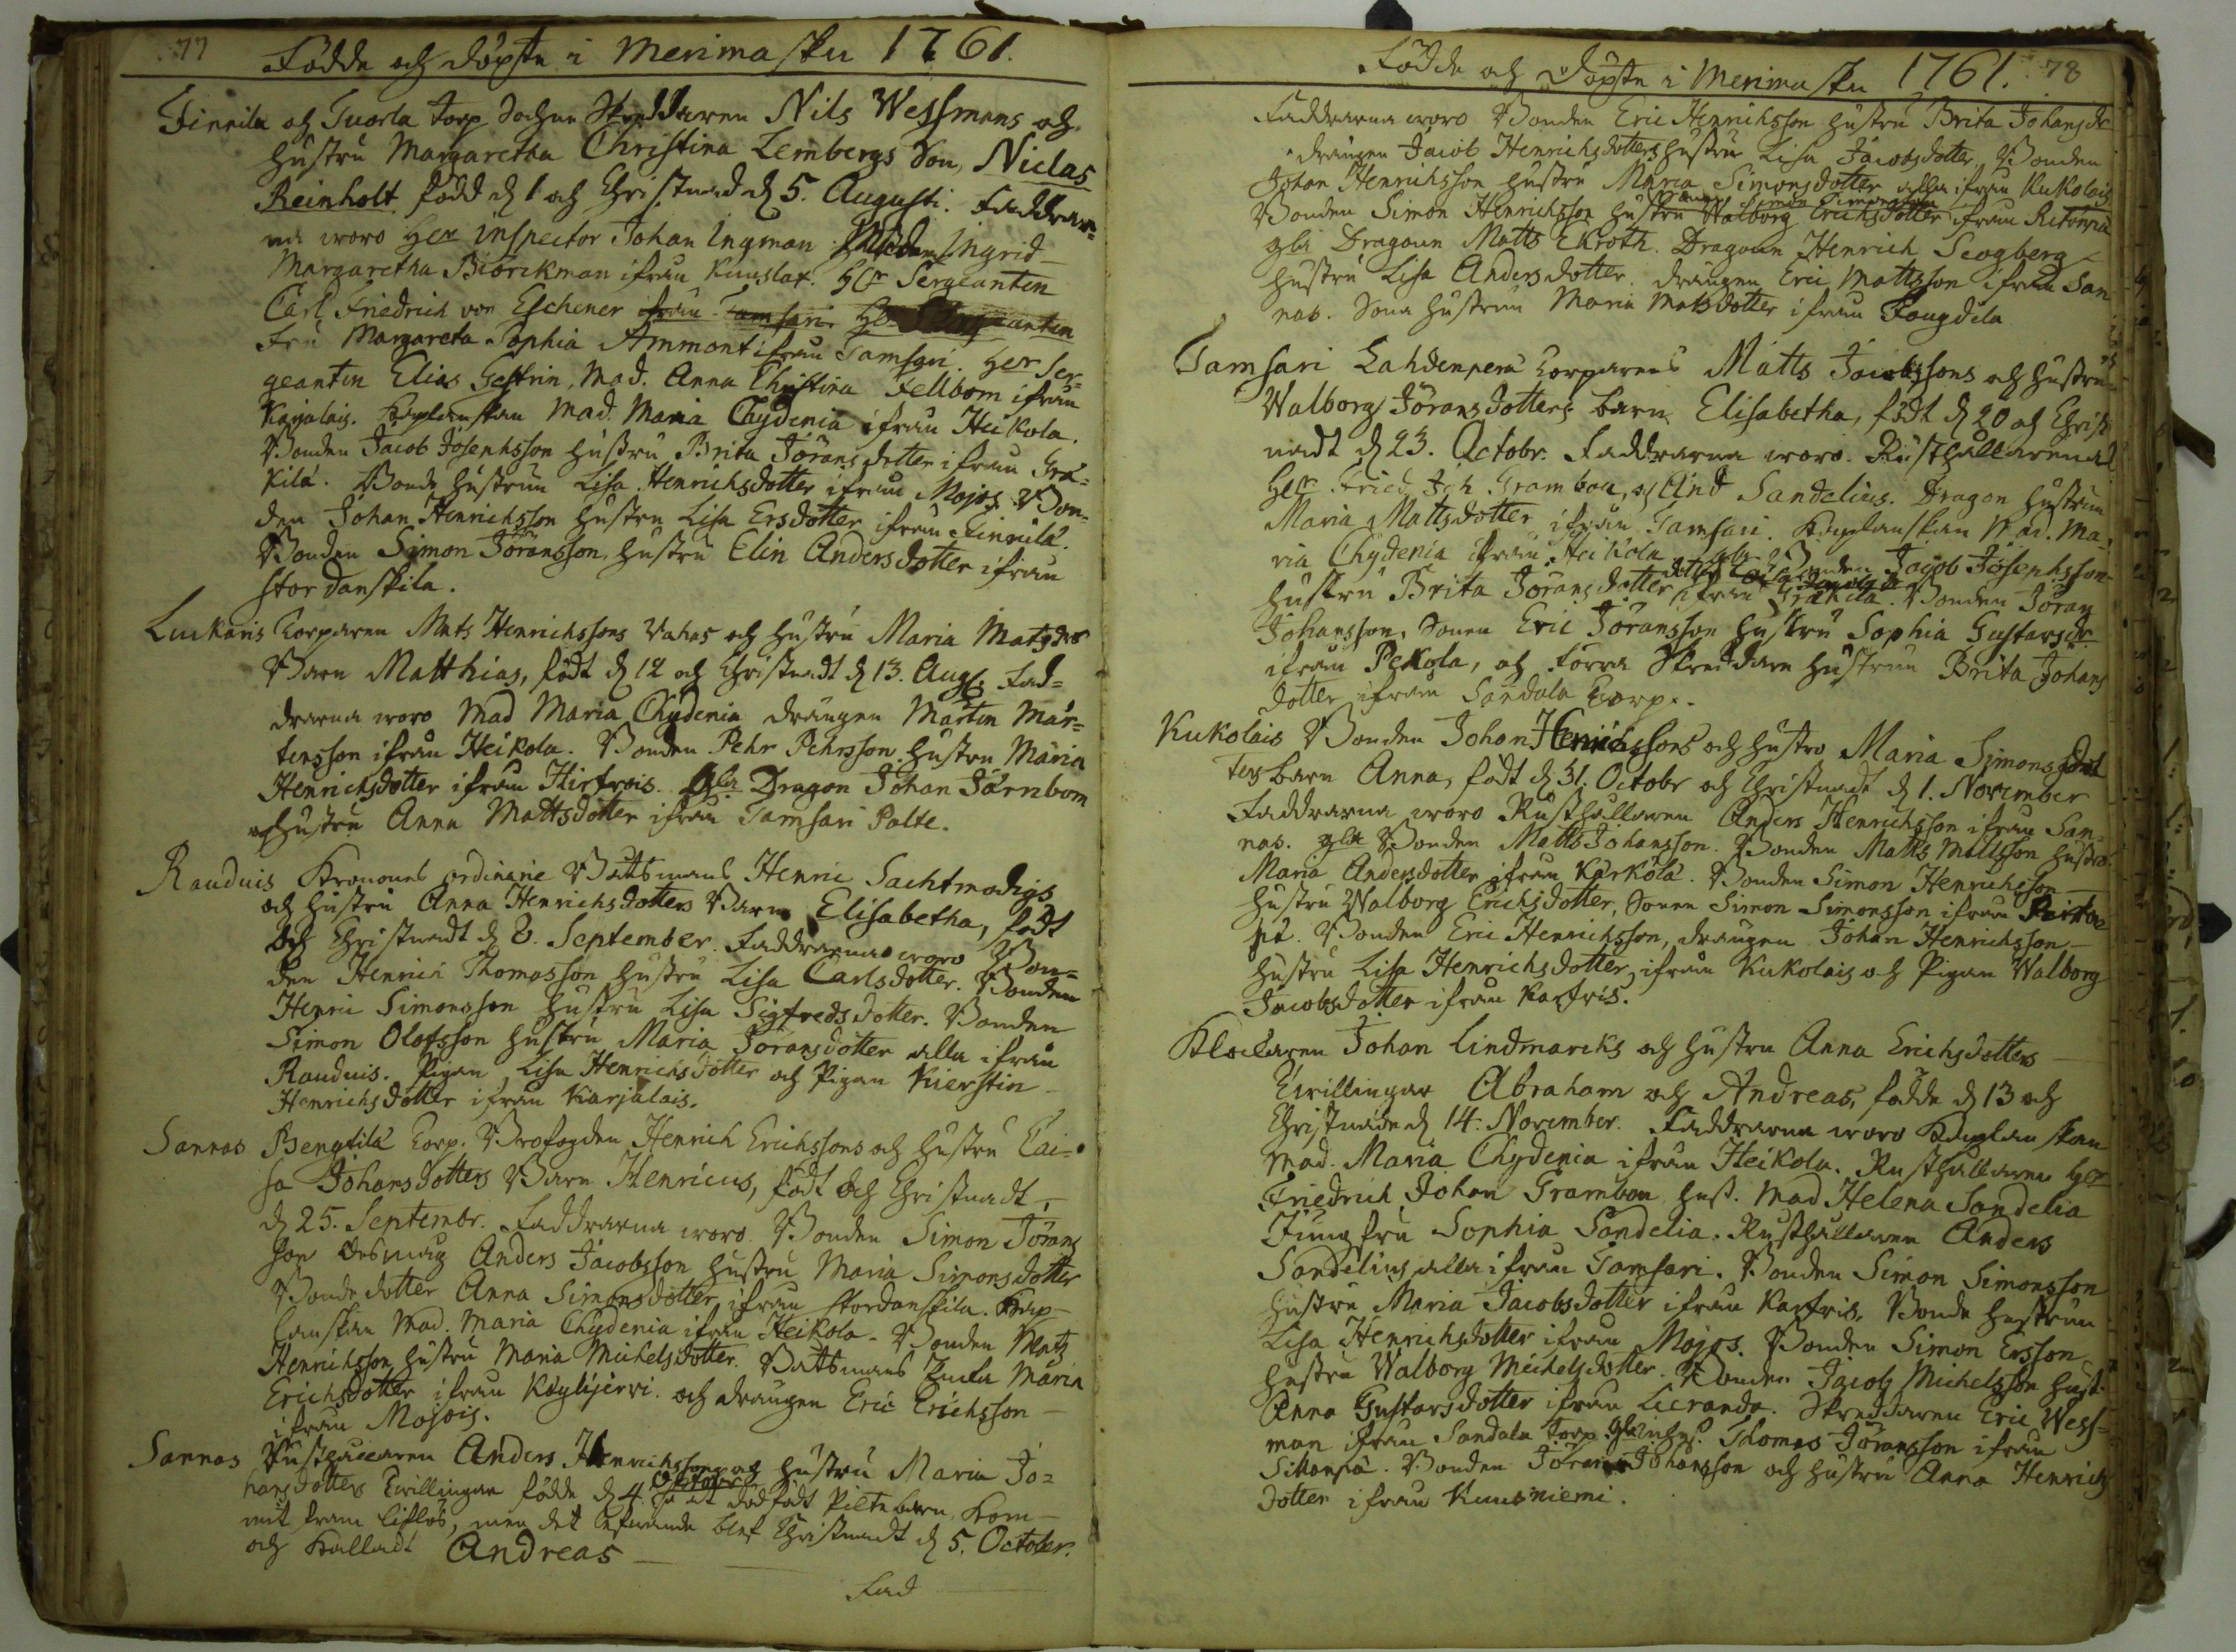 77
Födde och döpte i Merimasku 1761.
Finnila och Tuorla Torp Sochne Skreddaren Nils Wessmans och
hustru Margaretha Christina Lembergs Son, Niclas
Reinholt född d 1 och Christnad d 5. Augusti. Faddrar-
na woro Herr Inspector Johan Ingman Madam Ingrid
Margaretha Biörckman ifrån Kuuslax. Hr Sergeanten
Carl Friedrich von Eschener ifrån Tamsari
Fru Margareta Sophia Ammont ifrån Tamsari. Herr Ser-
geanten Elias Gestrin, Mad. Anna Christina Fellbom ifrån
Karjalais. Kaplanskan Mad. Maria Chydenia ifrån Heikola.
Bonden Jacob Josephsson hustru Brita Jöransdotter ifrån Grä-
kilä. Bonde hustrun Lisa Henrichsdotter ifrån Mojos. Bon-
den Johan Henrichsson hustru Lisa Ersdotter ifrån Finnilä.
Bonden Simon Jöransson, hustru Elin Andersdotter ifrån
stor danskila.
Luckaris Torparen Mats Henrichssons Vahas och hustru Maria Matsdrs
Barn Matthias, födt d 12 och Christnadt d 13. Aug. Fad-
drarna woro Mad Maria Chydenia drängen Mårten Mår-
tensson ifrån Heikola. Bonden Pehr Pehrsson hustru Maria
Henrichsdotter ifrån Kirfvois. gla Dragon Johan Järnbom
och hustru Anna Mattsdotter ifrån Tamsari Palte.
Rauduis Kronones ordinarie Båtsmans Henric Sachtmodigs
och hustru Anna Henrichsdotters Barn Elisabetha, födt
och Christnadt d 8. September. Faddrarna woro Bon-
den Henrich Thomasson hustru Lisa Carlsdotter. Bonden
Henric Simonsson hustru Lisa Sigfredsdotter. Bonden
Simon Olofsson hustru Maria Jöransdotter alla ifrån
Rauduis. Pigan Lisa Henrichsdotter och Pigan Kierstin
Henrichsdotter ifrån Karjalais.
Sannas Bengtilä Torp. Brofogden Henrich Erichssons och hustru Cai-
sa Johansdotters Barn Henricus, födt och Christnadt
d 25. Septembr. Faddrarna woro Bonden Simon Jörans
son Anders Jacobsson hustru Maria Simonsdotter
Bonde dotter Anna Simonsdotter ifrån stordanskila. Kap-
lanskan Mad. Maria Chydenia ifrån Heikola. Bonden Matz
Henrichsson hustru Maria Michelsdotter. Båttsmans Enka Maria
Erichsdotter ifrån Köylijärvi. och drängen Eric Erichsson
ifrån Mojois.
Sannas Rusthållaren Anders Henrichssons och hustru Maria Jo-
hansdotters Twillingar födde d 4. October et dödfödt Piltebarn, kom-
mit fram liflös, men det lefwande blef Christnadt d 5. October.
och kalladt Andreas
Fad
78
Födde och Döpte i Merimasku 1761.
Faddrarna woro Bonden Eric Henrichsson hustru Brita Johansdr
drängen Jacob Henrichsdotters hustru Lisa Jacobsdotter, Bonden
Johan Henrichsson hustru Maria Simonsdotter alla ifrån Kukolais
Simon Simonsson
Bonden Simon Henrichsson hustru Walborg Erichsdotter ifrån
gla Dragoun Matts Ekroth. Dragoun Henrich Scogberg
hustru Lisa Andersdotter. drängen Eric Mattsson ifrån San
nas. Sona hustrun Maria Matsdotter ifrån Fougdila
Tamsari Lahdenperä Torparens Matts Jacobssons och hustru
Walborg Jöransdotters barn Elisabetha, födt d 20 och Christ
nadt d 23. Octobr. Faddrarna woro. Rusthållarena
Herr Fried. Joh Grambou, och And Sandelius. Dragon hustrun
Maria Mattsdotter ifrån Tamsari. Kaplanskan Mad. Ma-
ria Chydenia ifrån Heikola. Bonden Jacob Josephsson
hustru Brita Jöransdotter ifrån Gräkilä. Bonden Jöran
Johansson. Sonen Eric Jöransson hustru Sophia Gustavsdr
ifrån Pekola, och förra Skreddare hustrun Brita Johans
dotter ifrån Sandala Torp.
Kukolais Bonden Johan Henrichssons och hustru Maria Simonsdot
ters barn Anna, födt d 31. Octobr och Christnadt d 1. November
Faddrarna woro Rusthållaren Anders Henrichsson ifrån San-
nas. gla Bonden Matts Johansson. Bonden Matts Mattsson hustru
Maria Andersdotter ifrån Karkola. Bonden Simon Henrichsson
hustru Walborg Erichsdotter, Sonen Simon Simonsson ifrån
Bonden Eric Henrichsson, drängen Johan Henrichsson
hustru Lisa Henrichsdotter, ifrån Kukolais och Pigan Walborg
Jacobsdotter ifrån Karfvis.
Klockaren Johan Lindmarcks och hustru Anna Erichsdotters
Twillingar Abraham och Andreas, födde d 13 och
Christnade d 14. November. Faddrarna woro Kaplanskan
Mad. Maria Chydenia ifrån Heikola. Rusthållaren Herr
Friedrich Johan Grambou hust. Mad Helena Sandelia
Jungfru Sophia Sandelia. Rusthållaren Anders
Sandelius alla ifrån Tamsari. Bonden Simon Simonsson
hustru Maria Jacobsdotter ifrån Karfvis, Bonde hustrun
Lisa Henrichsdotter ifrån Mojos. Bonden Simon Ersson
hustru Walborg Michelsdotter. Bonden Jacob Michelsson hust.
Anna Gustavsdotter ifrån Lieranda. Skreddaren Eric Wess-
man ifrån Sandala torp. Thomas Jöransson ifrån
Sikanpä. Bonden Jöran Johansson och hustru Anna Henrichs
dotter ifrån Kuusniemi.